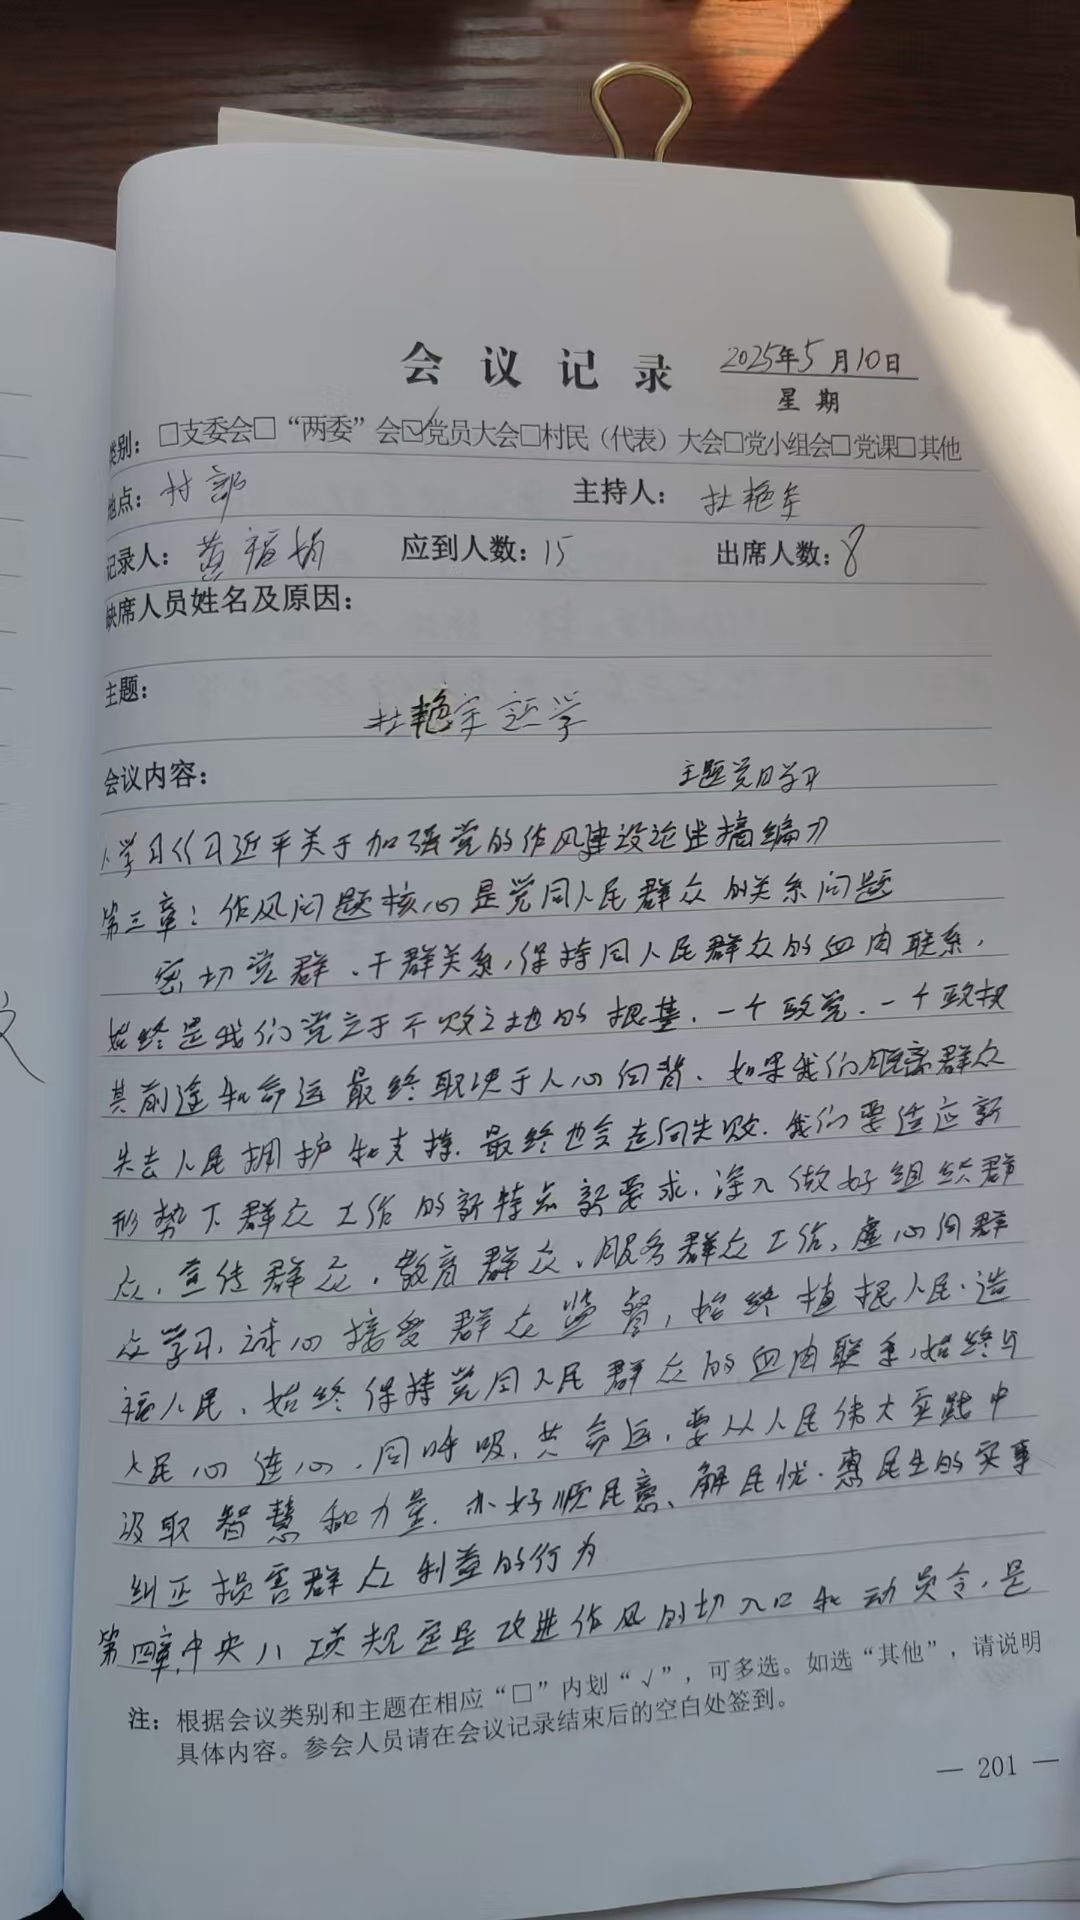 会议记录 2025年5月10日
星期
类别：□支委会□“两委”会☑党员大会□村民（代表）大会□党小组会□党课□其他
地点：村部 主持人：杜艳军
记录人：黄福娟 应到人数：15 出席人数：8
缺席人员姓名及原因：
主题：
杜艳军 学
会议内容： 主题党日学习
1、学习《习近平关于加强党的作风建设论述摘编》
第三章：作风问题核心是党同人民群众的关系问题
密切党群、干群关系，保持同人民群众的血肉联系，
始终是我们党立于不败之地的根基、一个政党、一个政权
其前途和命运最终取决于人心向背、如果我们脱离群众
失去人民拥护和支持、最终也会走向失败．我们要适应新
形势下群众工作的新特点新要求，深入做好组织群
众、宣传群众、教育群众、服务群众工作，虚心向群
众学习，诚心接受群众监督，始终植根人民、造
福人民、始终保持党同人民群众的血肉联系，始终与
人民心连心、同呼吸、共命运，要从人民伟大实践中
汲取智慧和力量．办好顺民意、解民忧、惠民生的实事
纠正损害群众利益的行为
第四章，中央八项规定是改进作风的切入口和动员令，是
注：根据会议类别和主题在相应“□”内划“√”，可多选。如选“其他”，请说明
具体内容。参会人员请在会议记录结束后的空白处签到。
— 201 —